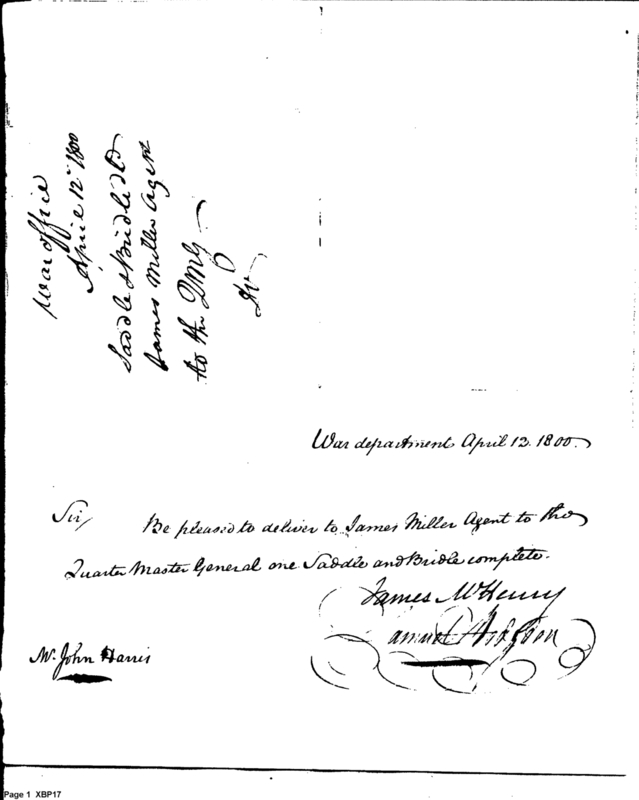 War office
April 12th 1800
Saddle & Bridle
James Miller Agent
to the QMG
War department April 12. 1800.
Sir,
Be pleased to deliver to James Miller Agent to the
Quarter Master General one Saddle and Bridle complete.
James McHenry
Samuel Hodgdon
Mr. John Harris
Page 1 XBP17